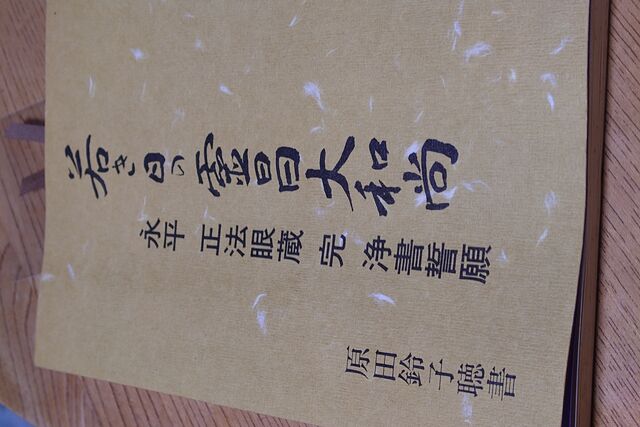 若き日の霊昌大和尚
永平 正法眼蔵 完 浄書誓願
原田鈴子聴書